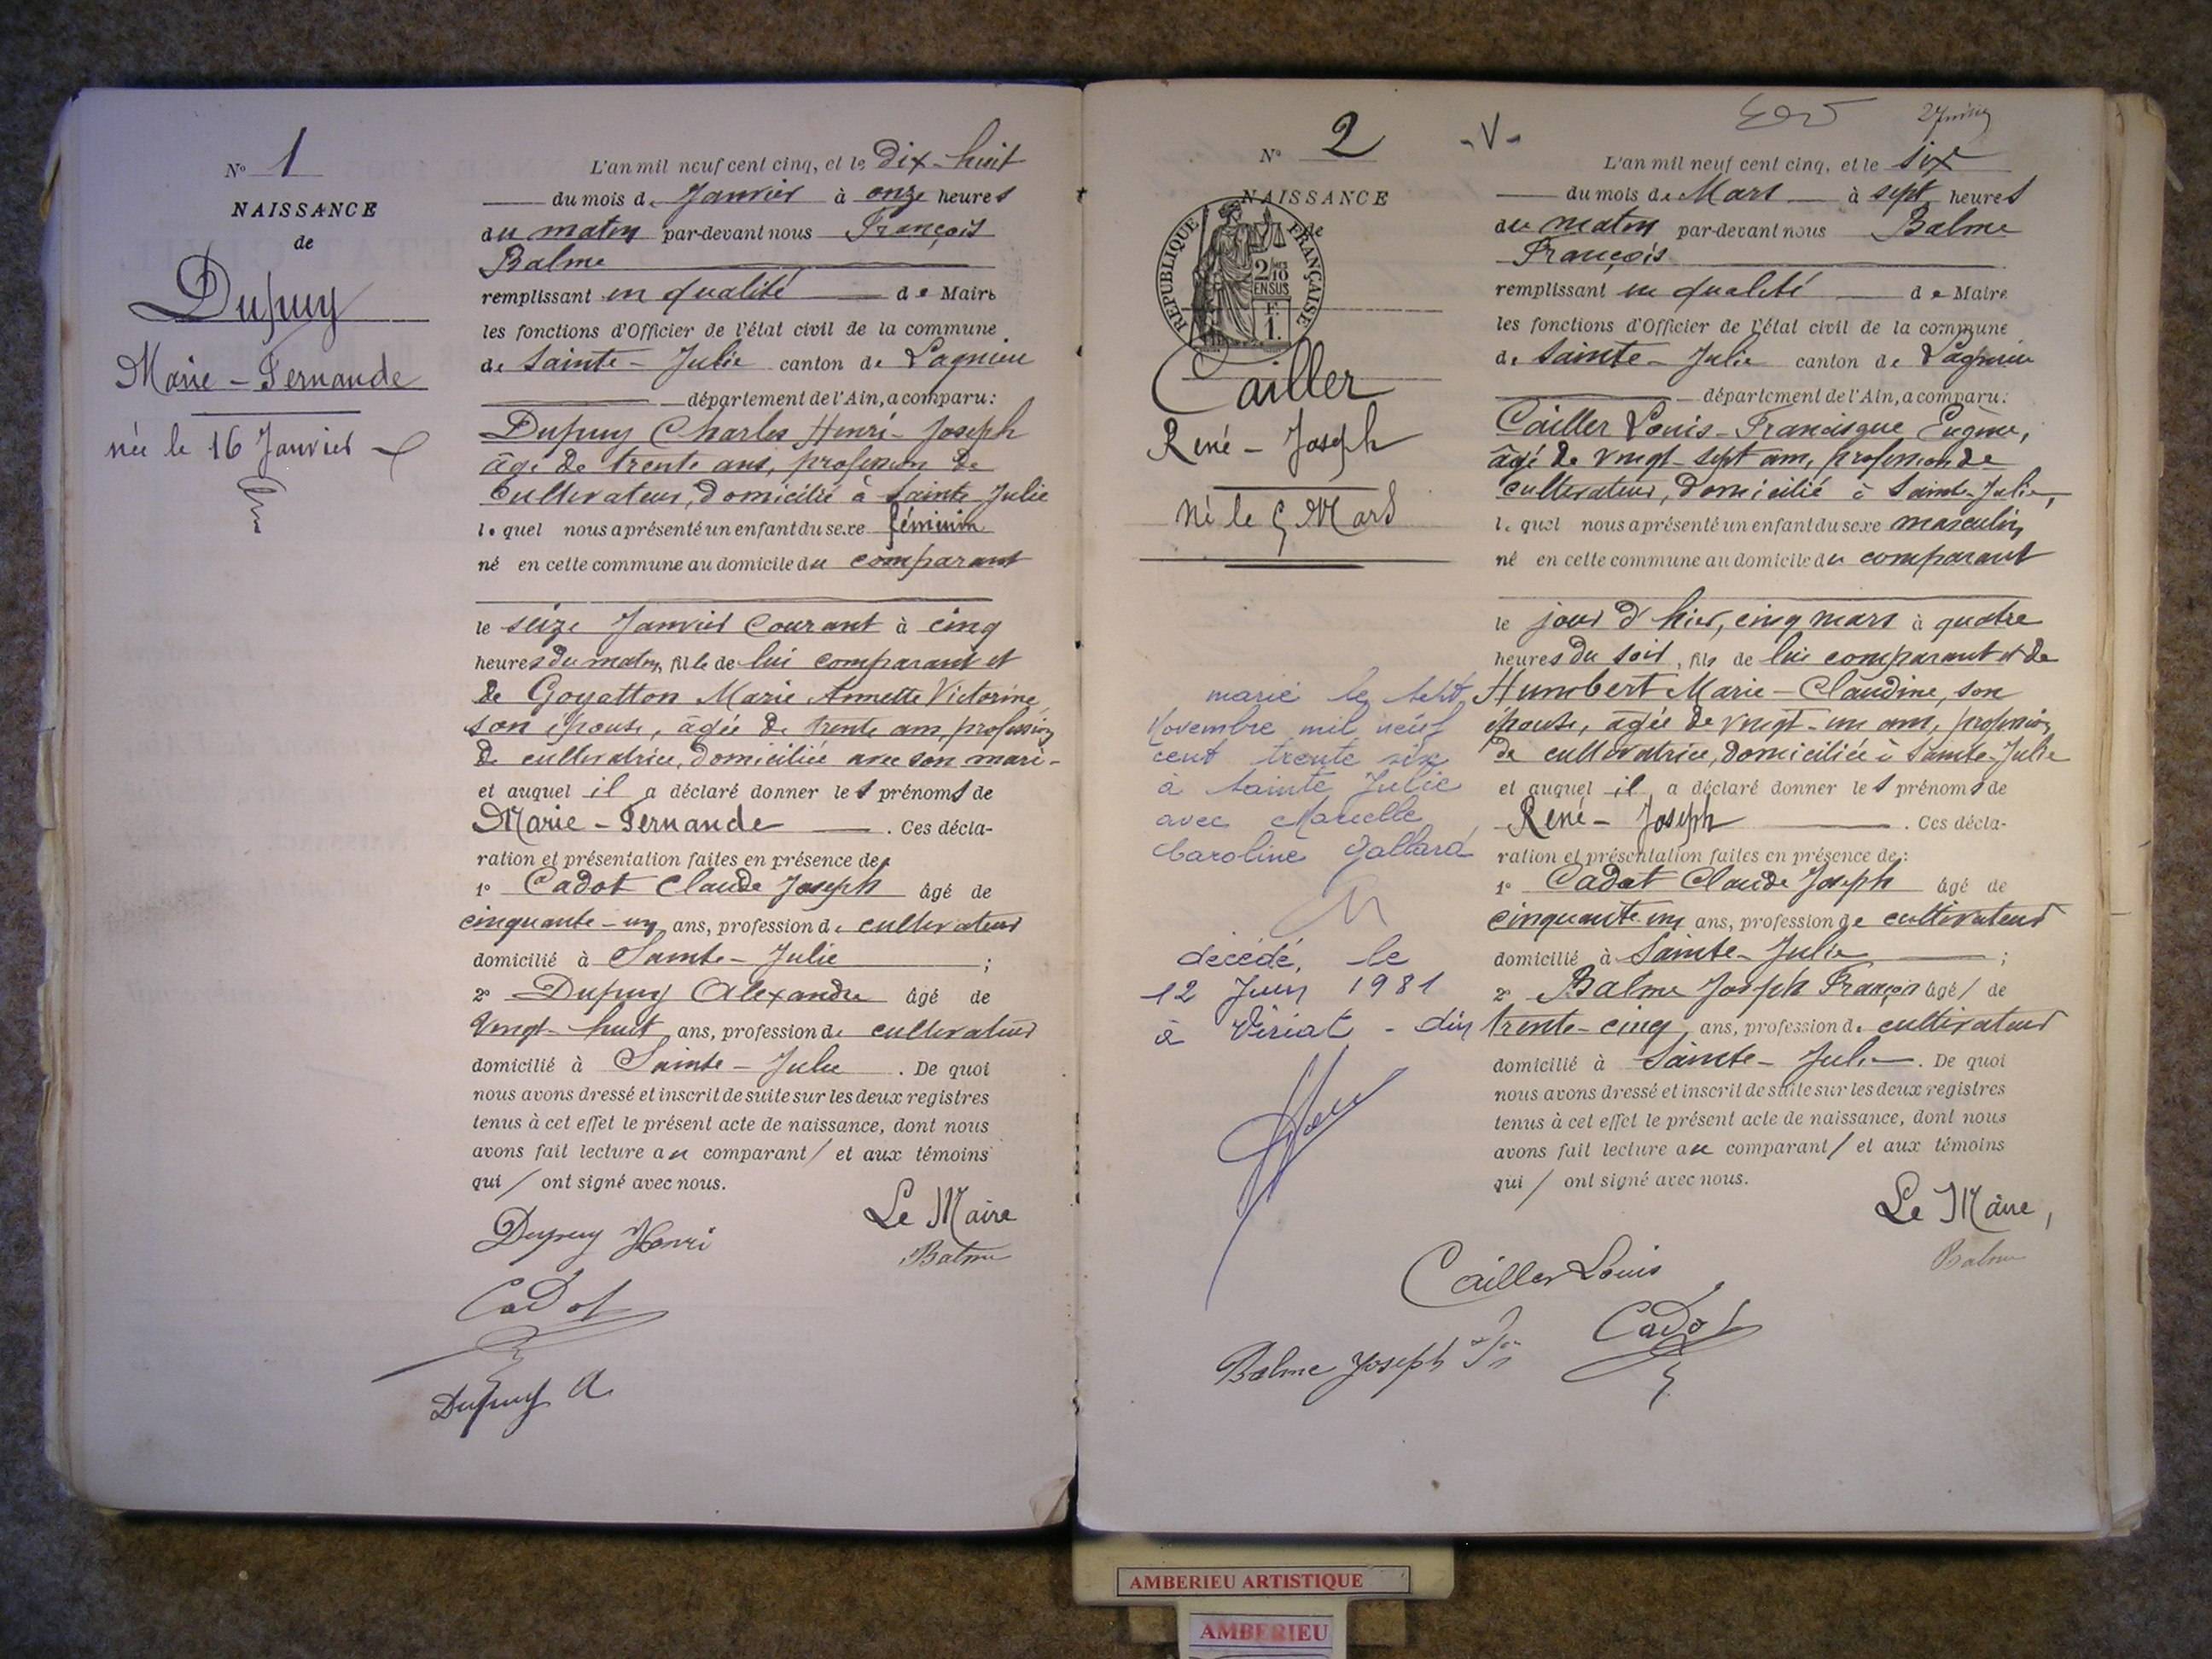 N° 1
NAISSANCE
de
Dupuy
Marie - Fernande
née le 16 Janvier
L'an mil neuf cent cinq, et le Dix-huit
du mois de Janvier à onze heures
du matin par-devant nous François
Balme
remplissant en qualité de Maire
les fonctions d'Officier de l'état civil de la commune
de Sainte-Julie canton de Lagnieu
département de l'Ain, a comparu:
Dupuy Charles Henri-Joseph
âgé de trente ans, profession de
Cultivateur, domicilié à Sainte Julie
lequel nous a présenté un enfant du sexe féminin
né en cette commune au domicile du comparant
le seize Janvier courant à cinq
heures du matin, fille de lui comparant et
de Goyatton Marie Annette Victorine
son épouse, âgée de trente ans, profession
de cultivatrice, domiciliée avec son mari -
et auquel il a déclaré donner les prénoms de
Marie - Fernande . Ces décla-
ration et présentation faites en présence de:
1° Cadot Claude Joseph âgé de
cinquante-un ans, profession de cultivateur
domicilié à Sainte-Julie ;
2° Dupuy Alexandre âgé de
Vingt-huit ans, profession de cultivateur
domicilié à Sainte-Julie . De quoi
nous avons dressé et inscrit de suite sur les deux registres
tenus à cet effet le présent acte de naissance, dont nous
avons fait lecture au comparant / et aux témoins
qui / ont signé avec nous.
Le Maire
Dupuy Henri
Balme
Cadot
Dupuy A
N° 2
-V-
NAISSANCE
de
REPUBLIQUE FRANÇAISE
2/10
EN SUS
F.
1.
Cailler
René - Joseph
Né le 5 Mars
marié le sept
Novembre mil neuf
cent trente six
à Sainte Julie
avec Marcelle
Caroline Jallard
décédé, le
12 Juin 1981
à Viriat - Ain
L'an mil neuf cent cinq, et le six
du mois de Mars à sept heures
du matin par-devant nous Balme
François
remplissant en qualité de Maire
les fonctions d'Officier de l'état civil de la commune
de Sainte-Julie canton de Lagnieu
département de l'Ain, a comparu:
Cailler Louis-Francisque Eugène,
âgé de vingt-sept ans, profession de
cultivateur, domicilié à Sainte-Julie,
lequel nous a présenté un enfant du sexe masculin
né en cette commune au domicile du comparant
le jour d'hier, cinq mars à quatre
heures du soir, fils de lui comparant et de
Humbert Marie-Claudine, son
épouse, âgée de vingt-un ans, profession
de cultivatrice, domiciliée à Sainte-Julie
et auquel il a déclaré donner les prénoms de
René - Joseph . Ces décla-
ration et présentation faites en présence de:
1° Cadot Claude Joseph âgé de
cinquante-un ans, profession de cultivateur
domicilié à Sainte-Julie ;
2° Balme Joseph François âgé / de
trente-cinq ans, profession de cultivateur
domicilié à Sainte-Julie. De quoi
nous avons dressé et inscrit de suite sur les deux registres
tenus à cet effet le présent acte de naissance, dont nous
avons fait lecture au comparant / et aux témoins
qui / ont signé avec nous.
Le Maire,
Balme
Cailler Louis
Cadot
Balme Joseph
AMBERIEU ARTISTIQUE
AMBERIEU